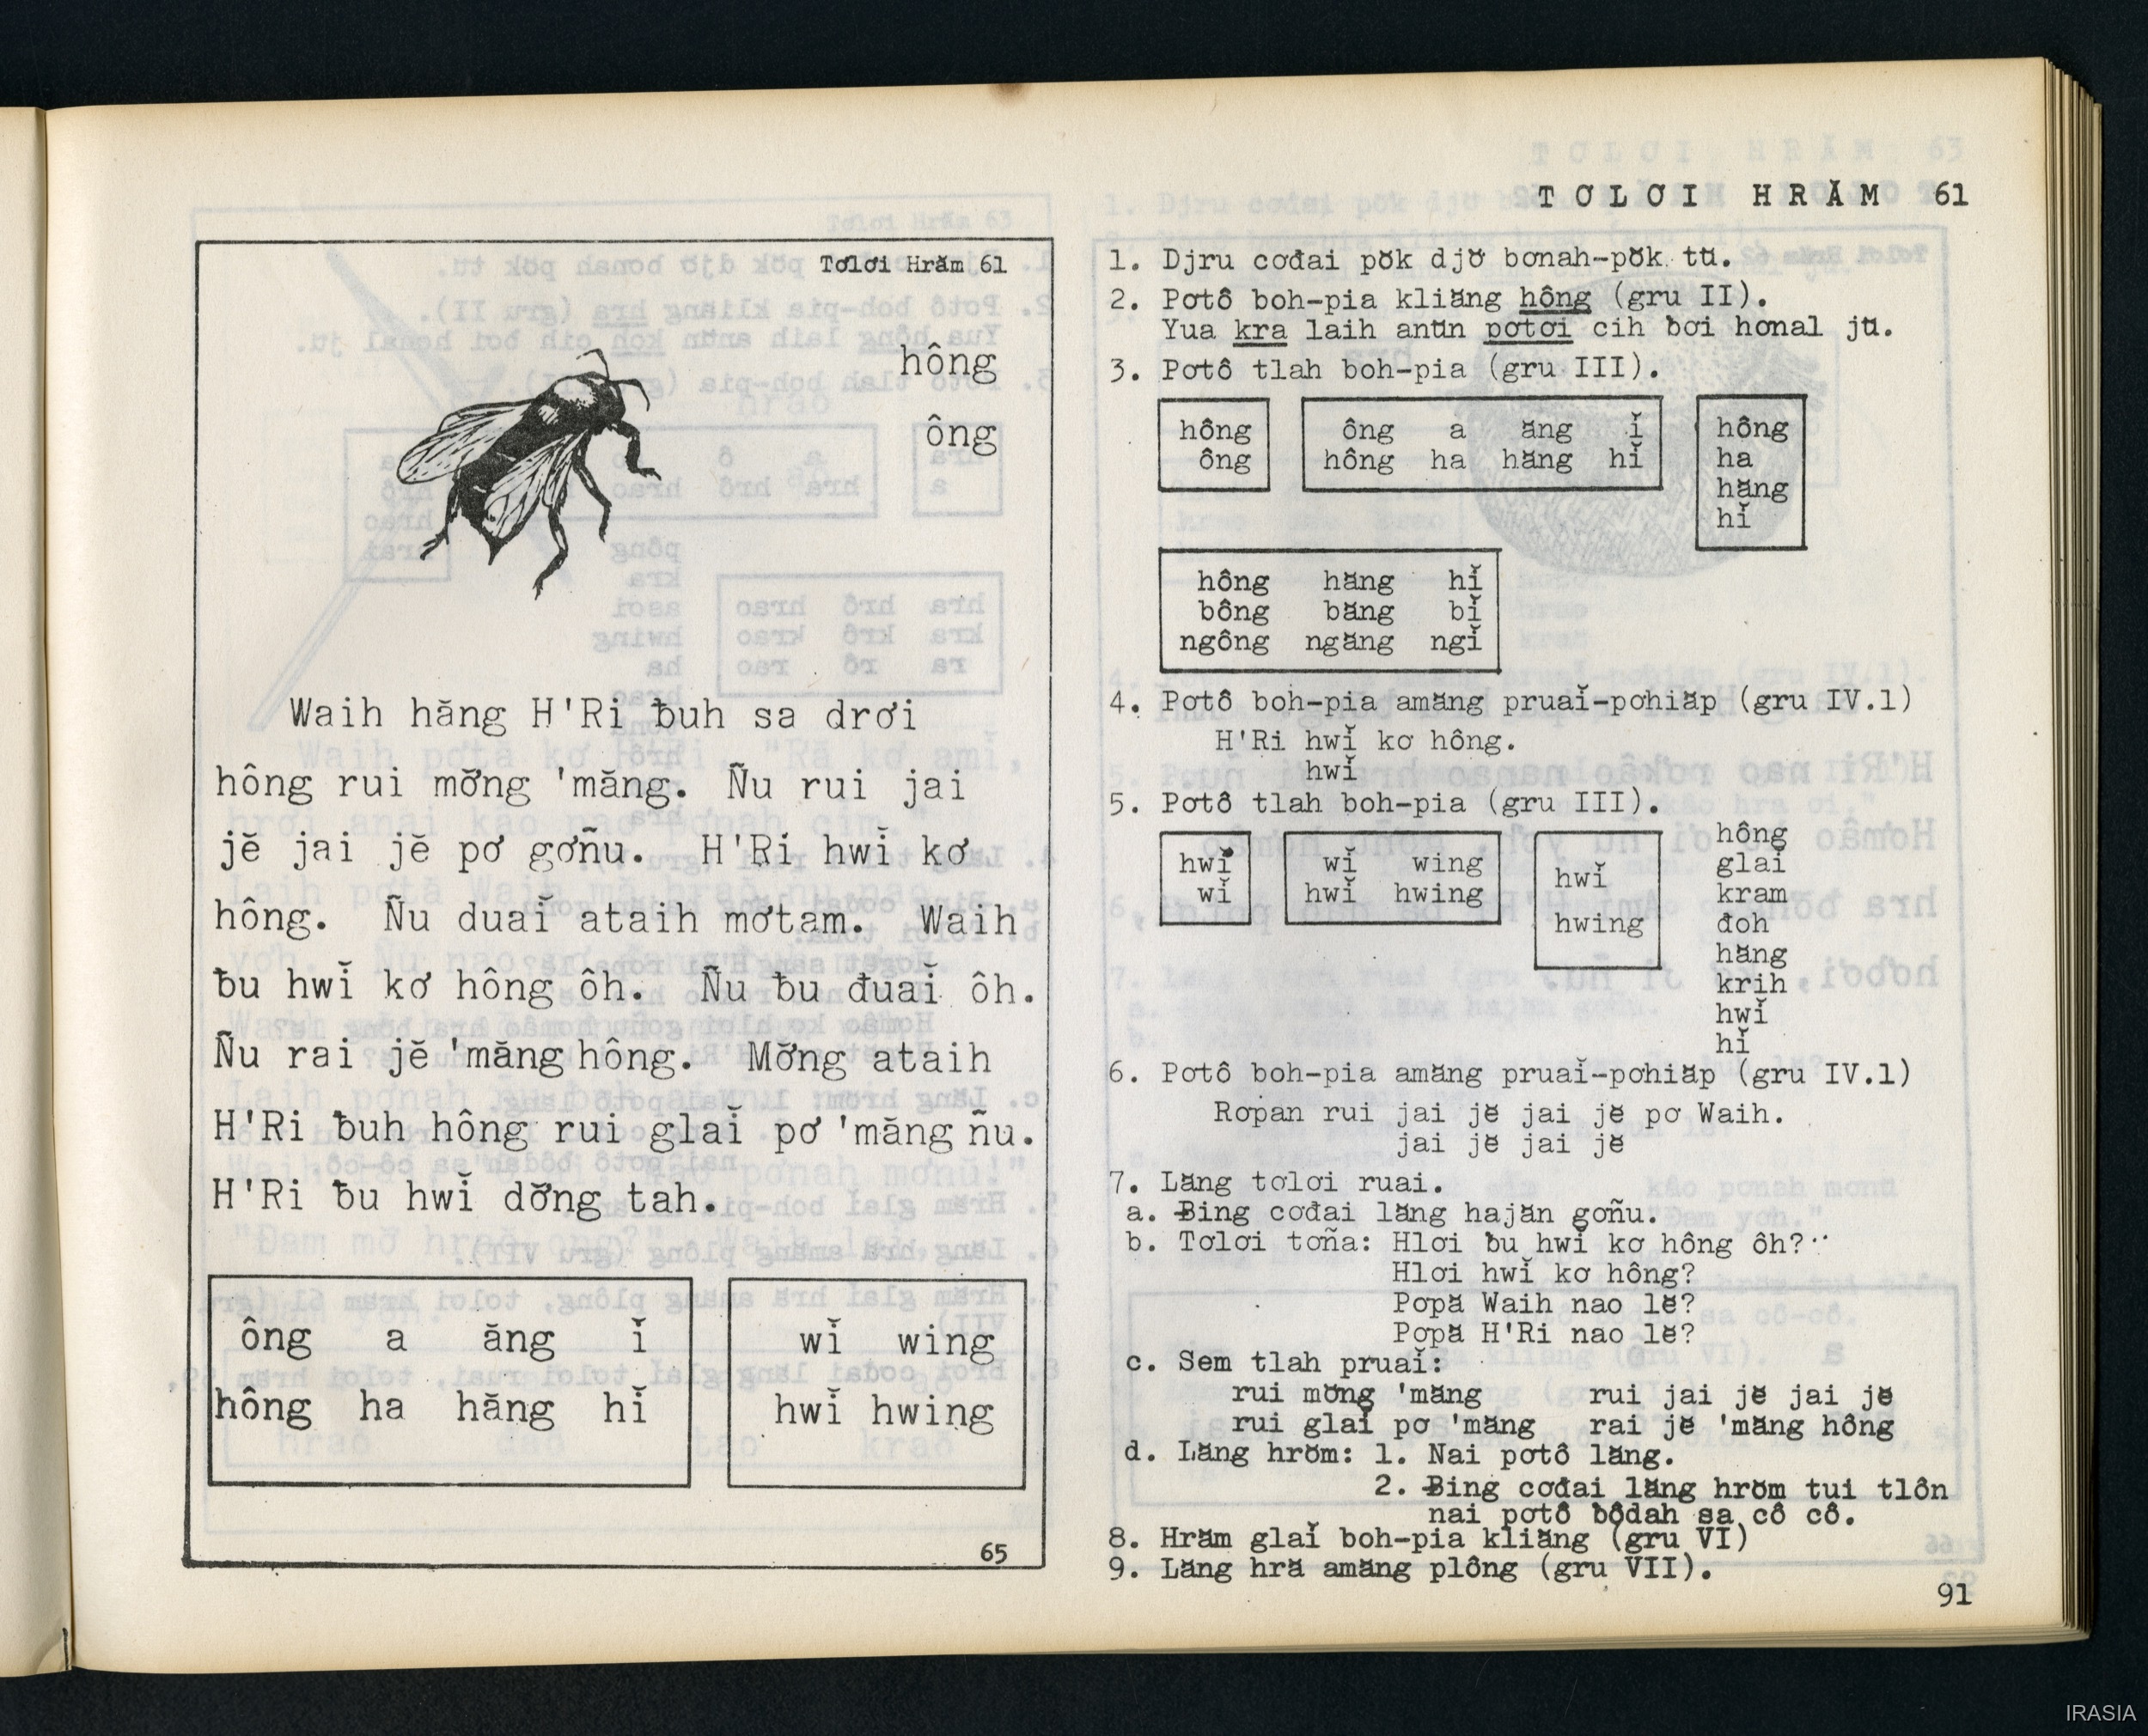 Tơlơi Hrăm 61
hông
ông
Waih hăng H'Ri ƀuh sa drơi
hông rui mơ̆ng 'măng. Ñu rui jai
jĕ jai jĕ pơ gơñu. H'Ri hwĭ kơ
hông. Ñu duaĭ ataih mơtam. Waih
ƀu hwĭ kơ hông ôh. Ñu ƀu đuaĭ ôh.
Ñu rai jĕ 'măng hông. Mơ̆ng ataih
H'Ri ƀuh hông rui glaĭ pơ 'măng ñu.
H'Ri ƀu hwĭ dơ̆ng tah.
ông a ăng ĭ
hông ha hăng hĭ
wĭ wing
hwĭ hwing
65
TƠLƠI HRĂM 61
1. Djru cơđai pŏk djơ̆ bơnah-pŏk tŭ.
2. Pơtô boh-pia kliăng hông (gru II).
Yua kra laih anŭn pơtơi cih ƀơi hơnal jŭ.
3. Pơtô tlah boh-pia (gru III).
hông
ông
ông a ăng ĭ
hông ha hăng hĭ
hông
ha
hăng
hĭ
hông hăng hĭ
bông băng bĭ
ngông ngăng ngĭ
4. Pơtô boh-pia amăng pruaĭ-pơhiăp (gru IV.1)
H'Ri hwĭ kơ hông.
hwĭ
5. Pơtô tlah boh-pia (gru III).
hwĭ
wĭ
wĭ wing
hwĭ hwing
hwĭ
hwing
hông
glaĭ
kram
đoh
hăng
krih
hwĭ
hĭ
6. Pơtô boh-pia amăng pruaĭ-pơhiăp (gru IV.1)
Rơpan rui jai jĕ jai jĕ pơ Waih.
jai jĕ jai jĕ
7. Lăng tơlơi ruai.
a. Ƀing cơđai lăng hajăn gơñu.
b. Tơlơi tơña: Hlơi ƀu hwĭ kơ hông ôh?
Hlơi hwĭ kơ hông?
Pơpă Waih nao lĕ?
Pơpă H'Ri nao lĕ?
c. Sem tlah pruaĭ:
rui mơ̆ng 'măng rui jai jĕ jai jĕ
rui glaĭ pơ 'măng rai jĕ 'măng hông
d. Lăng hrŏm: 1. Nai pơtô lăng.
2. Ƀing cơđai lăng hrŏm tui tlôn
nai pơtô ƀôdah sa cô cô.
8. Hrăm glaĭ boh-pia kliăng (gru VI)
9. Lăng hră amăng plông (gru VII).
91
IRASIA